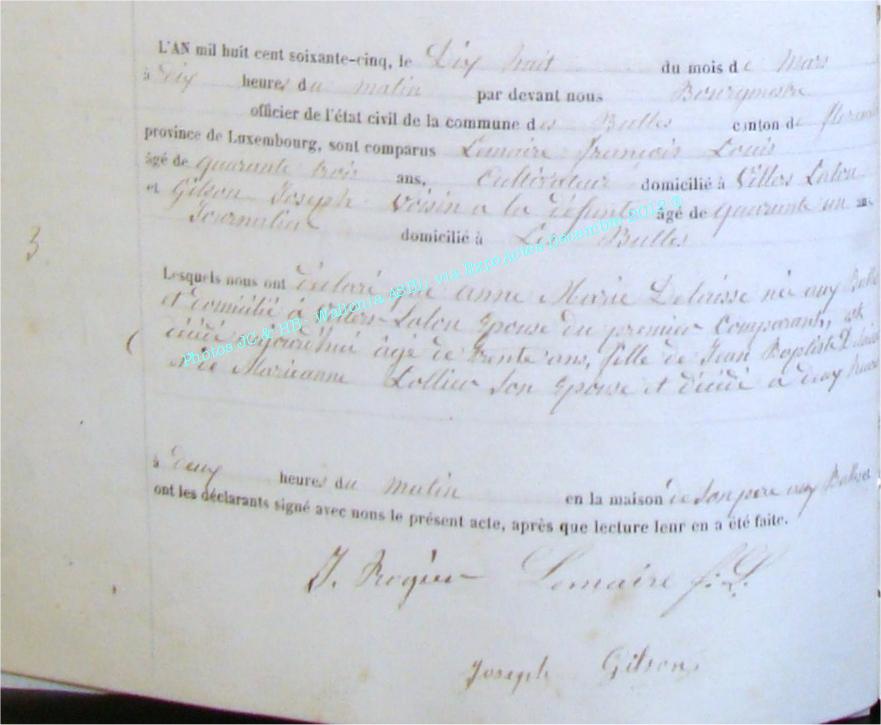 L'AN mil huit cent soixante-cinq, le Dix huit du mois de Mars
à dix heures du matin par devant nous Bourgmestre
officier de l'état civil de la commune des Bulles canton de
province de Luxembourg, sont comparus Lemaire françois Louis
âgé de quarante trois ans, Cultivateur domicilié à Villers Lalou
et Gilson Joseph Voisin a la défunte âgé de quarante un ans
Journalier domicilié à Les Bulles
3
Lesquels nous ont déclaré que anne Marie Delaisse né aux Bulles
et domicilié à Villers Lalou Epouse du premier Comparant, est
décédé aujourd'hui âgé de trente ans, fille de Jean Baptiste
et de Marieanne Lollieu Son Epouse et décédé a deux heures
Photos JC & HB, Wallonia ASBL via ExpoActes Décembre 2012
à deux heures du matin en la maison de son pere aux Bulles et
ont les déclarants signé avec nous le présent acte, après que lecture leur en a été faite.
Lemaire f: L.
Joseph Gilson